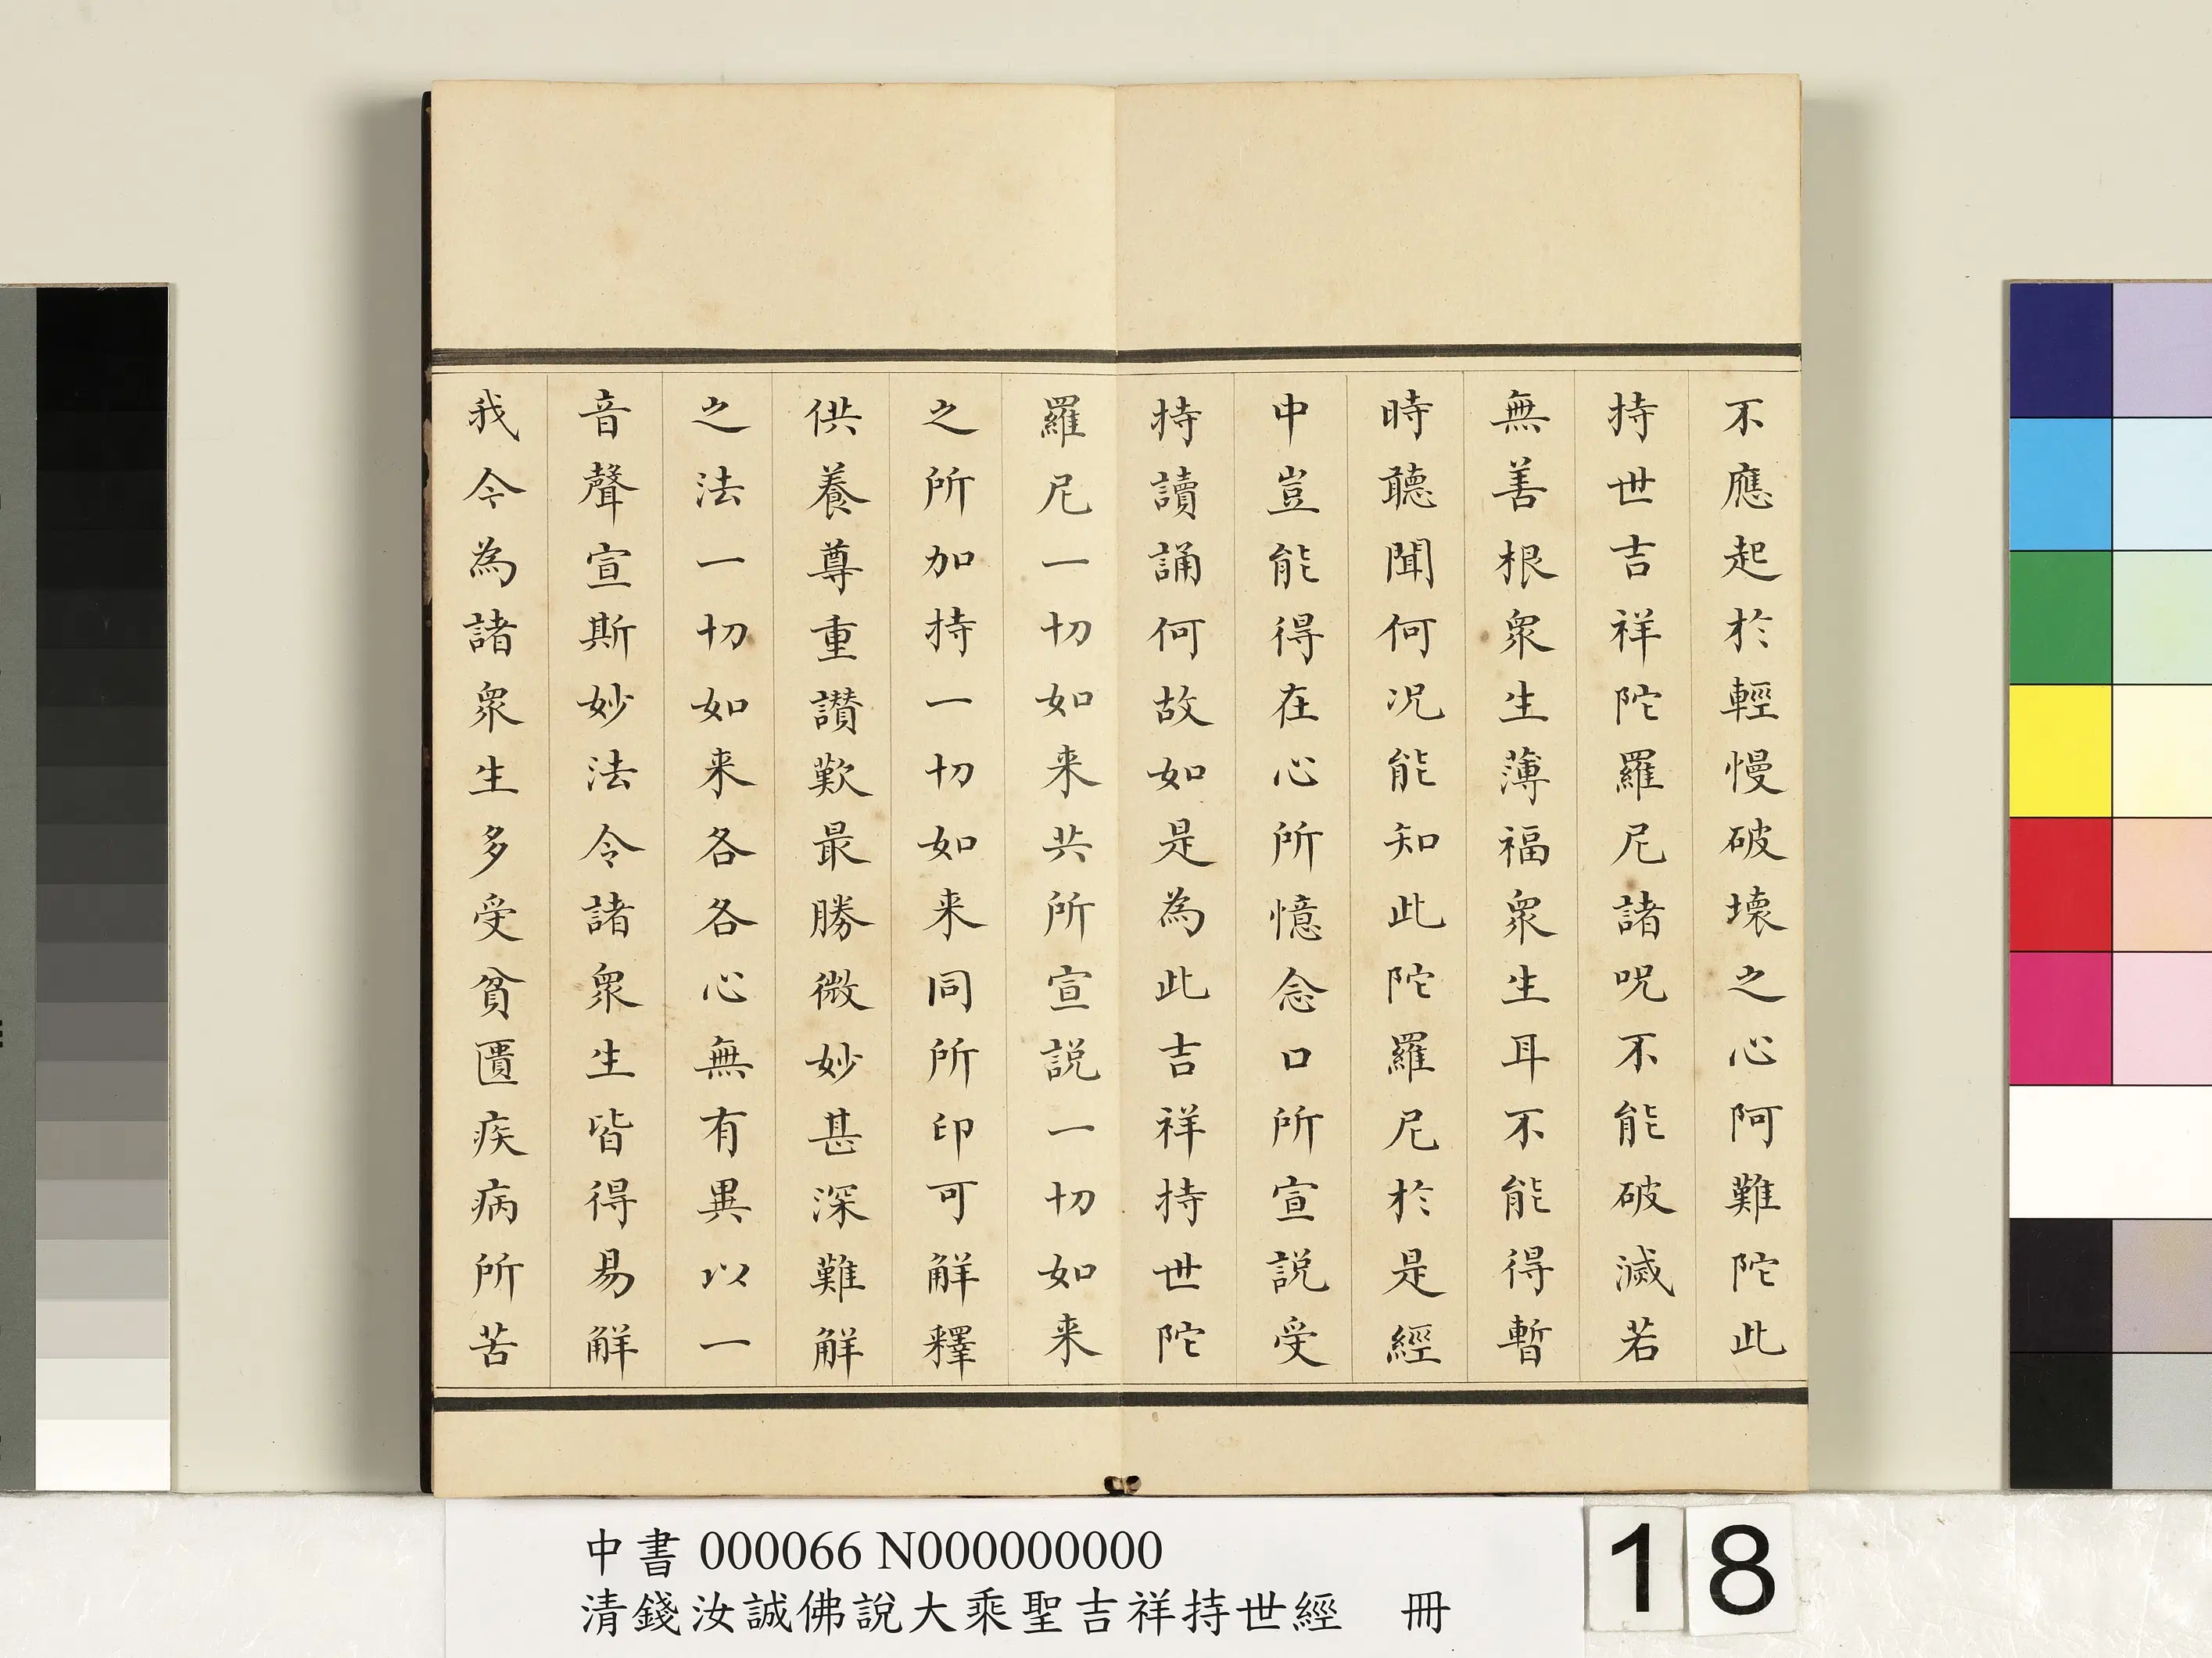 不應起於輕慢破壞之心阿難陀此
持世吉祥陀羅尼諸呪不能破滅若
無善根衆生薄福衆生耳不能得暫
時聽聞何况能知此陀羅尼於是經
中豈能得在心所憶念口所宣説受
持讀誦何故如是為此吉祥持世陀
羅尼一切如来共所宣説一切如来
之所加持一切如来同所印可解釋
供養尊重讃歎最勝微妙甚深難解
之法一切如来各各心無有異以一
音聲宣斯妙法令諸衆生皆得易解
我今為諸衆生多受貧匱疾病所苦
中書 000066 N000000000
清錢汝誠佛說大乘聖吉祥持世經 冊
18